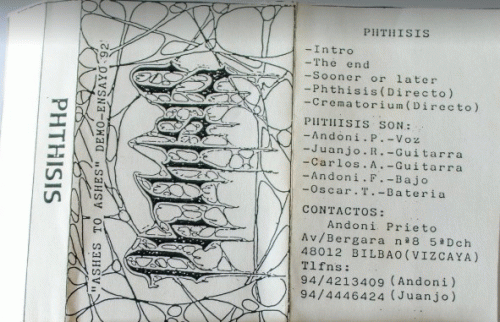 PHTHISIS
"ASHES TO ASHES" DEMO-ENSAYO-92'
Phthisis
PHTHISIS
-Intro
-The end
-Sooner or later
-Phthisis(Directo)
-Crematorium(Directo)
PHTHISIS SON:
-Andoni.P.-Voz
-Juanjo.R.-Guitarra
-Carlos.A.-Guitarra
-Andoni.F.-Bajo
-Oscar.T.-Bateria
CONTACTOS:
Andoni Prieto
Av/Bergara nª8 5ªDch
48012 BILBAO(VIZCAYA)
Tlfns:
94/4213409(Andoni)
94/4446424(Juanjo)